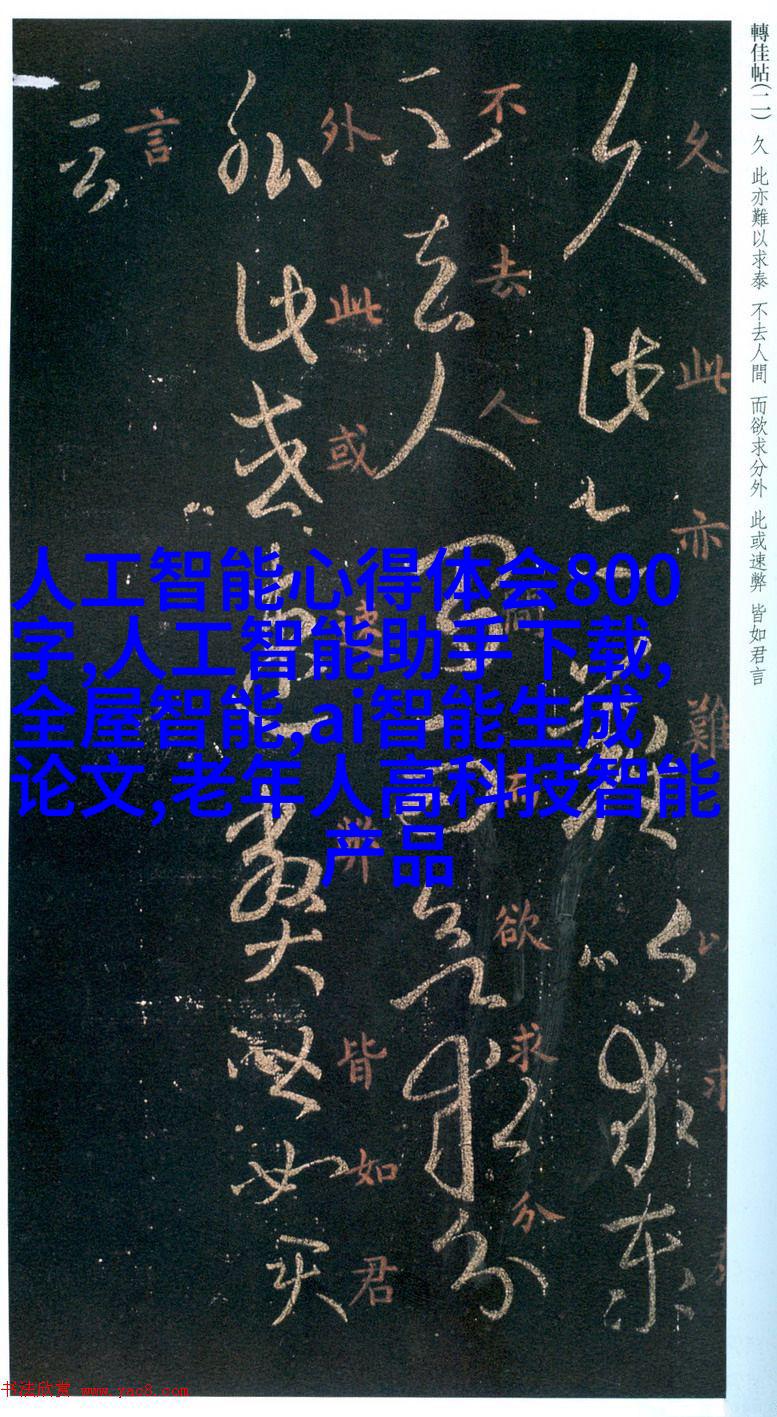 轉佳帖(二) 久 此亦難以求泰 不去人間 而欲求分外 此或速弊 皆如君言
久此亦難以求泰
不去人間而欲求分
外此或速弊皆如君
言
人工智能心得体会800
字,人工智能助手下载,
全屋智能,ai智能生成
论文,老年人高科技智能
产品
书法欣赏 www.yac8.com